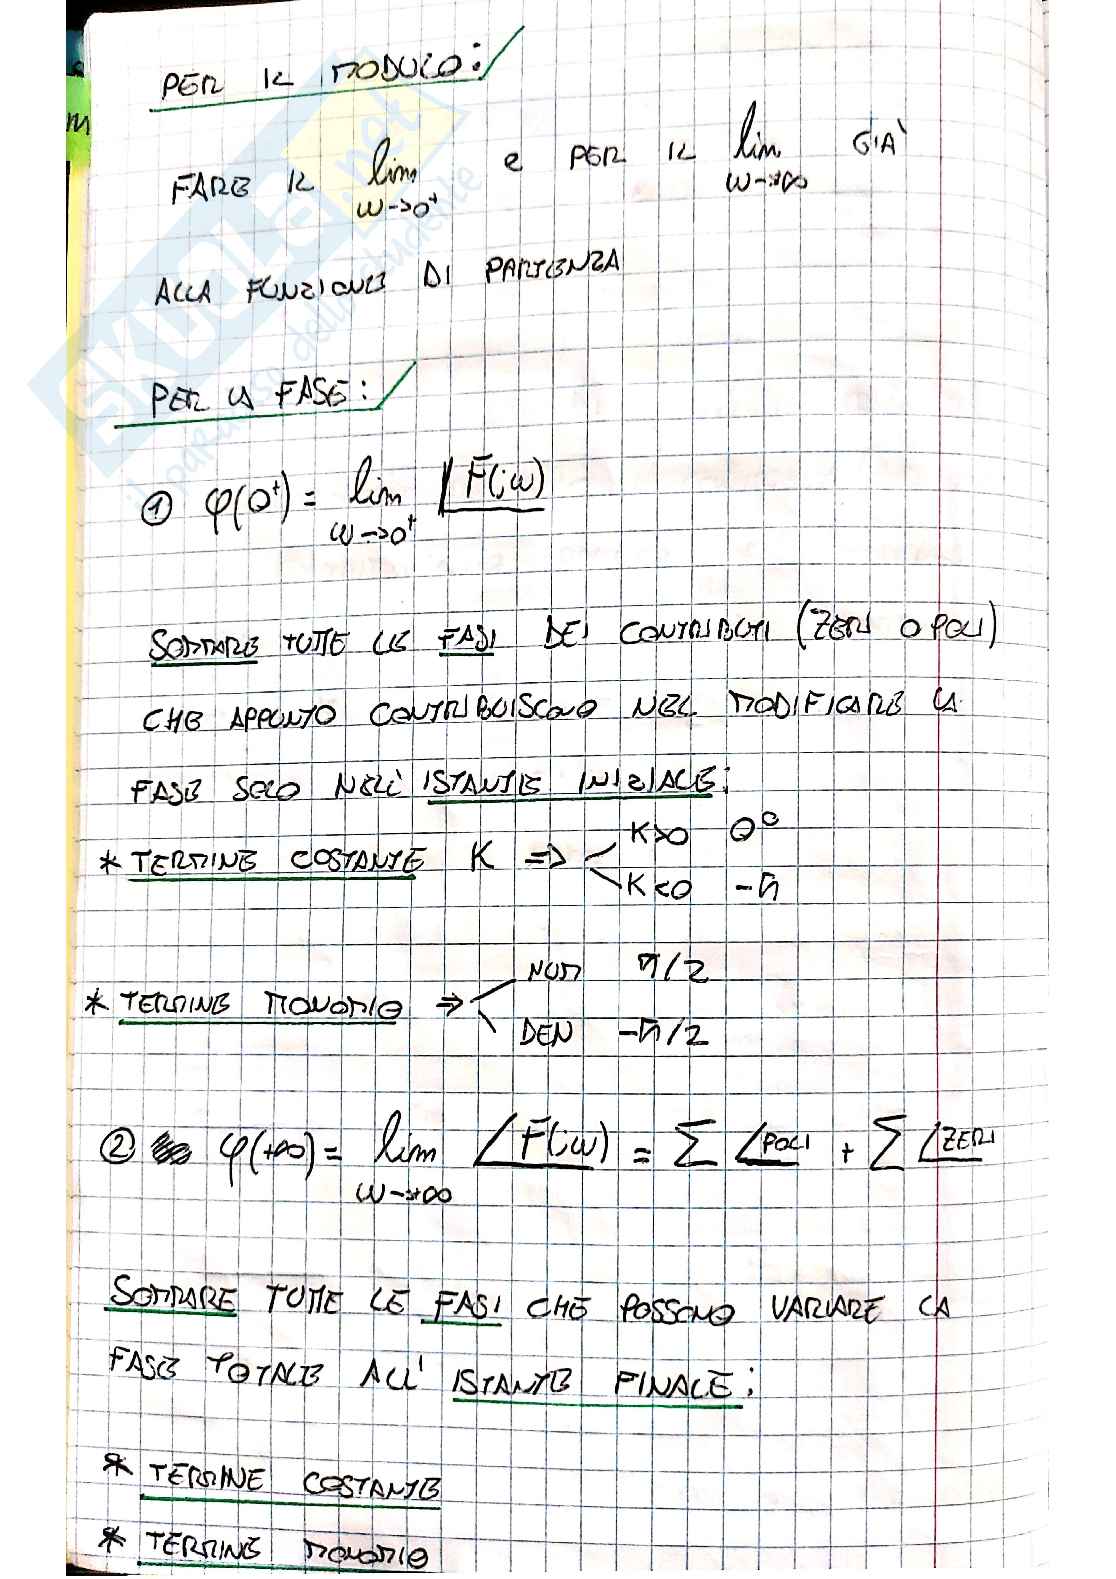 PER IL MODULO:
FARE IL lim ω→0⁺ e PER IL lim ω→+∞ GIÀ
ALLA FUNZIONE DI PARTENZA
PER LA FASE:
① φ(0⁺) = lim ω→0⁺ ∠F(jω)
SOMMARE TUTTE LE FASI DEI CONTRIBUTI (ZERI O POLI)
CHE APPUNTO CONTRIBUISCONO NEL MODIFICARE LA
FASE SOLO NELL'ISTANTE INIZIALE:
* TERMINE COSTANTE K => K>0 0°
K<0 -π
* TERMINE MONOMIO => NUM π/2
DEN -π/2
② φ(+∞) = lim ω→+∞ ∠F(jω) = Σ ∠POLI + Σ ∠ZERI
SOMMARE TUTTE LE FASI CHE POSSONO VARIARE LA
FASE TOTALE ALL'ISTANTE FINALE:
* TERMINE COSTANTE
* TERMINE MONOMIO
SKUOLA.net
il paradiso dello studente